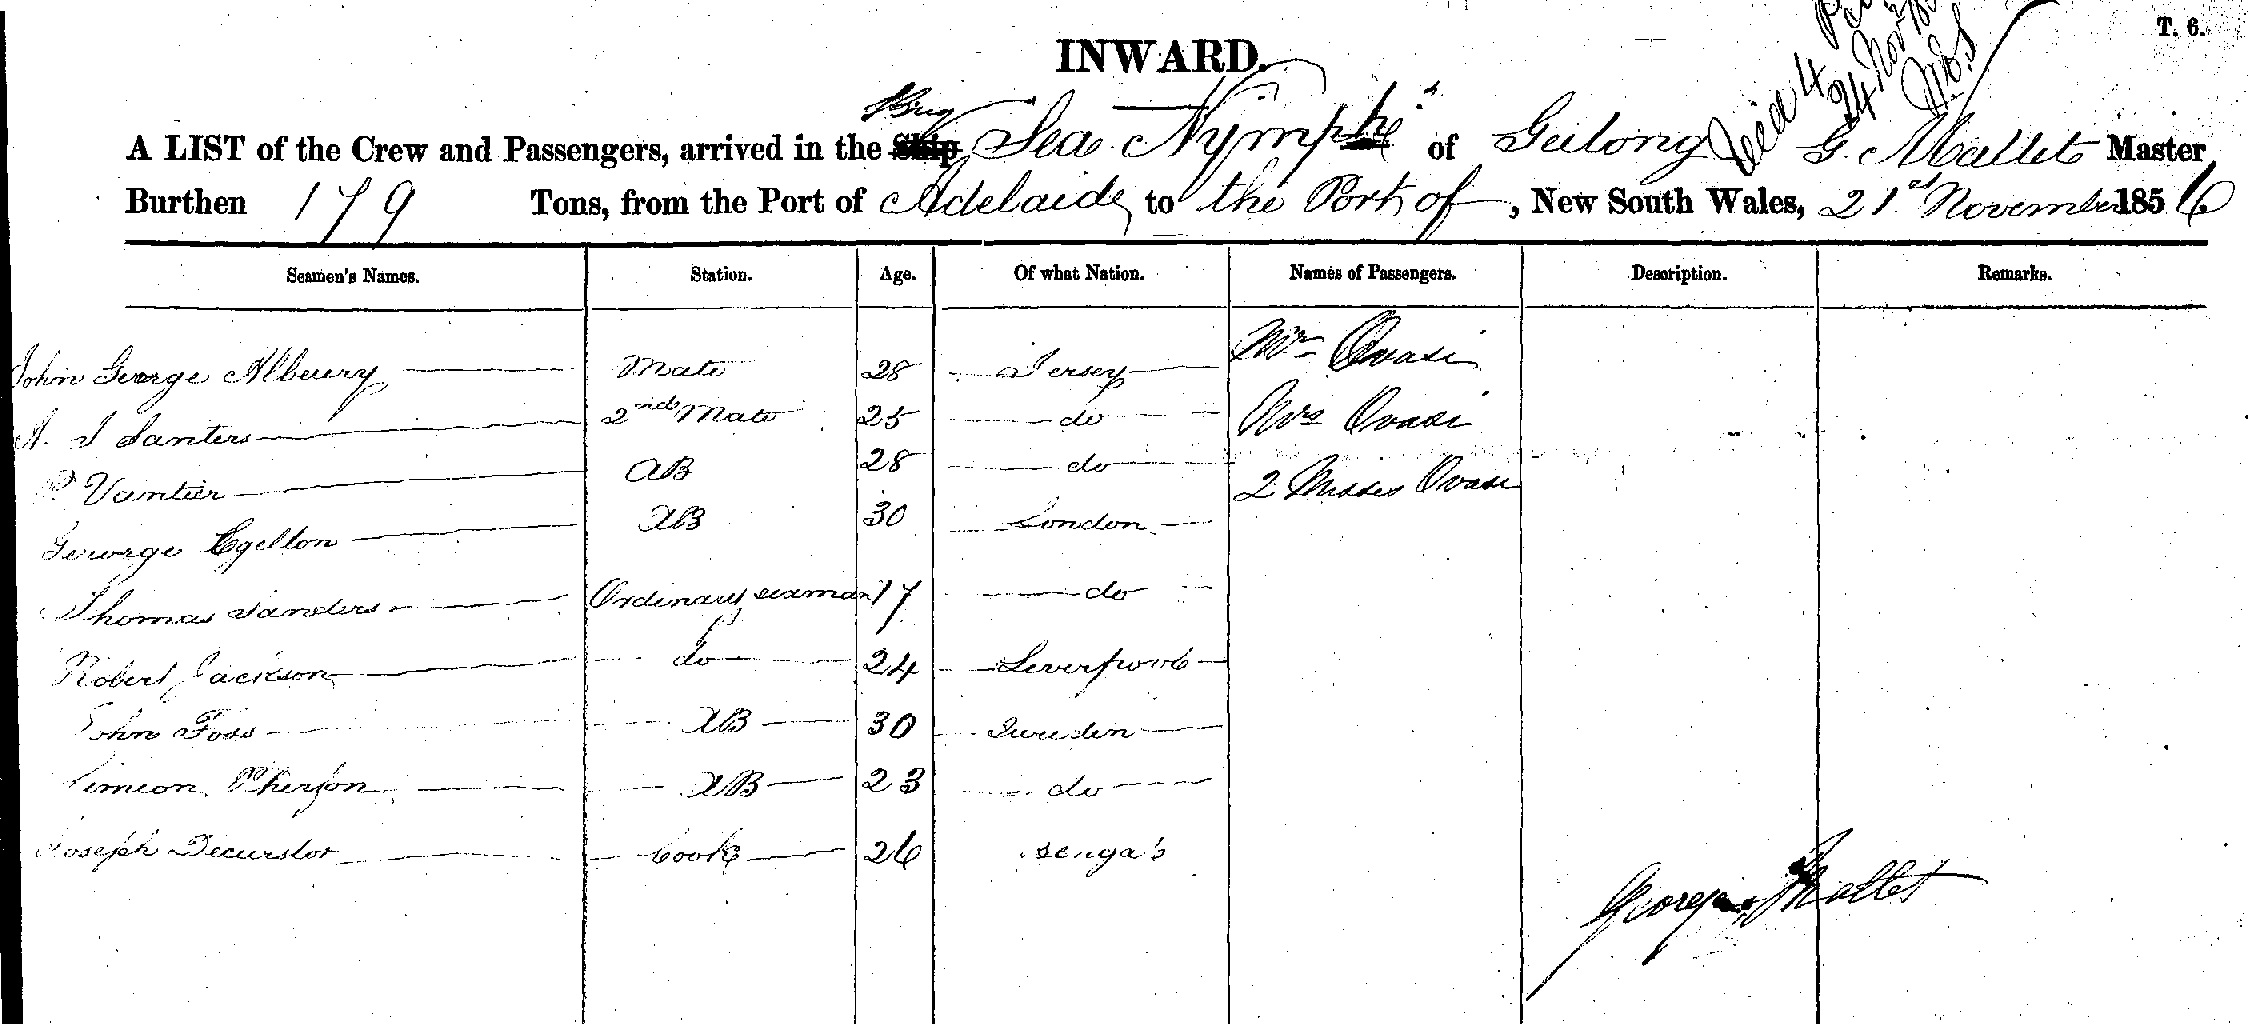 T. 6.
INWARD.
Brig
A LIST of the Crew and Passengers, arrived in the Ship Sea Nymph of Geelong G. Mallet Master
Burthen 179 Tons, from the Port of Adelaide to the Port of, New South Wales, 21st November 1856
Seamen's Names. Station. Age. Of what Nation. Names of Passengers. Description. Remarks.
John George Mate 28 Jersey Mr
2nd Mate 25 do Mrs
P AB 28 do 2 Misses
AB 30 London
Thomas Sanders Ordinary seaman 17 do
Robert Jackson do 24 Leverpool
John Foss AB 30 Sweden
Simeon AB 23 do
Joseph Cook 26
George Mallet